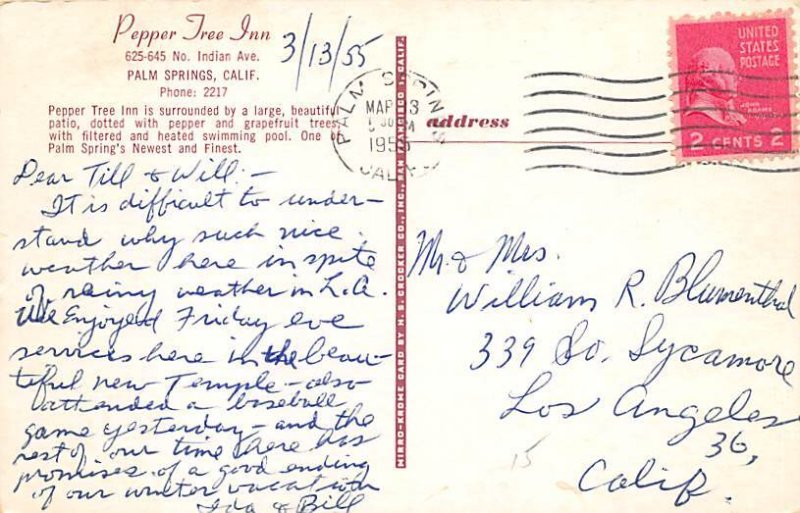 Pepper Tree Inn
625-645 No. Indian Ave.
PALM SPRINGS, CALIF.
Phone: 2217
3/13/55
Pepper Tree Inn is surrounded by a large, beautiful
patio, dotted with pepper and grapefruit trees,
with filtered and heated swimming pool. One of
Palm Spring's Newest and Finest.
Dear Till & Will:-
It is difficult to under-
stand why such nice
weather here in spite
of rainy weather in L.A.
We Enjoyed Friday eve
services here in the beau-
tiful new Temple - also
attended a baseball
game yesterday - and the
rest of our time here has
promises of a good ending
of our winter vacation
Ida & Bill
MIRRO-KROME CARD BY H. S. CROCKER CO., INC., SAN FRANCISCO 1, CALIF.
PALM SPRINGS
MAR 13
PM
1955
CALIF.
address
UNITED
STATES
POSTAGE
JOHN
ADAMS
2 CENTS 2
Mr. & Mrs.
William R. Blumenthal
339 So. Sycamore
Los Angeles
36,
Calif.
15